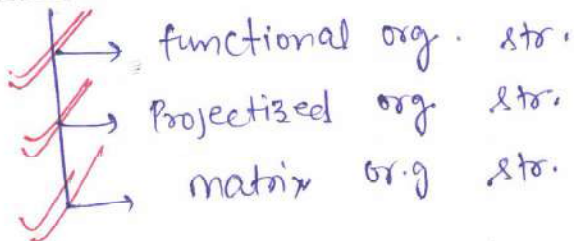 functional org. str.
Projectized org. str.
matrix or.g str.